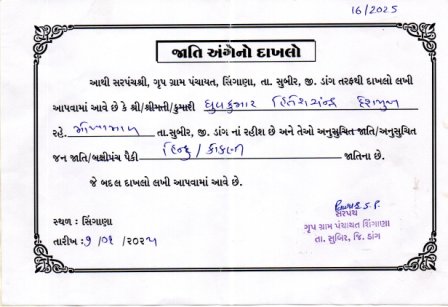 16/2025
જાતિ અંગેનો દાખલો
આથી સરપંચશ્રી, ગૃપ ગ્રામ પંચાયત, સિંગાણા, તા. સુબીર, જી. ડાંગ તરફથી દાખલો લખી
આપવામાં આવે છે કે શ્રી/શ્રીમતી/કુમારી ધ્રુવકુમાર હિતેશચંદ્ર દેશમુખ
રહે. તા.સુબીર, જી. ડાંગ નાં રહીશ છે અને તેઓ અનુસુચિત જાતિ/અનુસુચિત
જન જાતિ/બક્ષીપંચ પૈકી હિન્દુ / કોંકણી જાતિના છે.
જે બદલ દાખલો લખી આપવામાં આવે છે.
સ્થળ : સિંગાણા
તારીખ : /૨૦૨૫
સરપંચ
ગૃપ ગ્રામ પંચાયત શિંગાણા
તા. સુબિર, જિ. ડાંગ